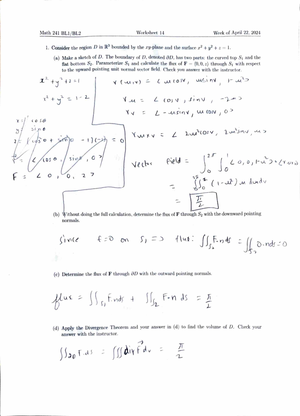 Math 241 BL1/BL2 Worksheet 14 Week of April 22, 2024
1. Consider the region D in R³ bounded by the xy-plane and the surface x² + y² + z = 1.
(a) Make a sketch of D. The boundary of D, denoted ∂D, has two parts: the curved top S₁ and the
flat bottom S₂. Parameterize S₁ and calculate the flux of F = ⟨0, 0, z⟩ through S₁ with respect
to the upward pointing unit normal vector field. Check you answer with the instructor.
x² + y² + z = 1
x² + y² = 1 - z
r(u,v) = ⟨ u cos v, u sin v, 1-u² ⟩
r u = ⟨ cos v, sin v, -2u ⟩
r v = ⟨ -u sin v, u cos v, 0 ⟩
r u × r v = ⟨ 2u² cos v, 2u² sin v, u ⟩
F = ⟨ 0, 0, z ⟩
vector field = ∫₀^2π ∫₀ ⟨ 0, 0, 1-u² ⟩
= ∫ ∫ (1-u²) u du dv
= π/2
(b) Without doing the full calculation, determine the flux of F through S₂ with the downward pointing
normals.
Since z=0 on S₁ ⟹ flux: ∬ F·n ds = ∬ 0·n ds = 0
(c) Determine the flux of F through ∂D with the outward pointing normals.
flux = ∬S₁ F·n ds + ∬S₂ F·n ds = π/2
(d) Apply the Divergence Theorem and your answer in (d) to find the volume of D. Check your
answer with the instructor.
∬∂D F ds = ∭ div F dv = π/2